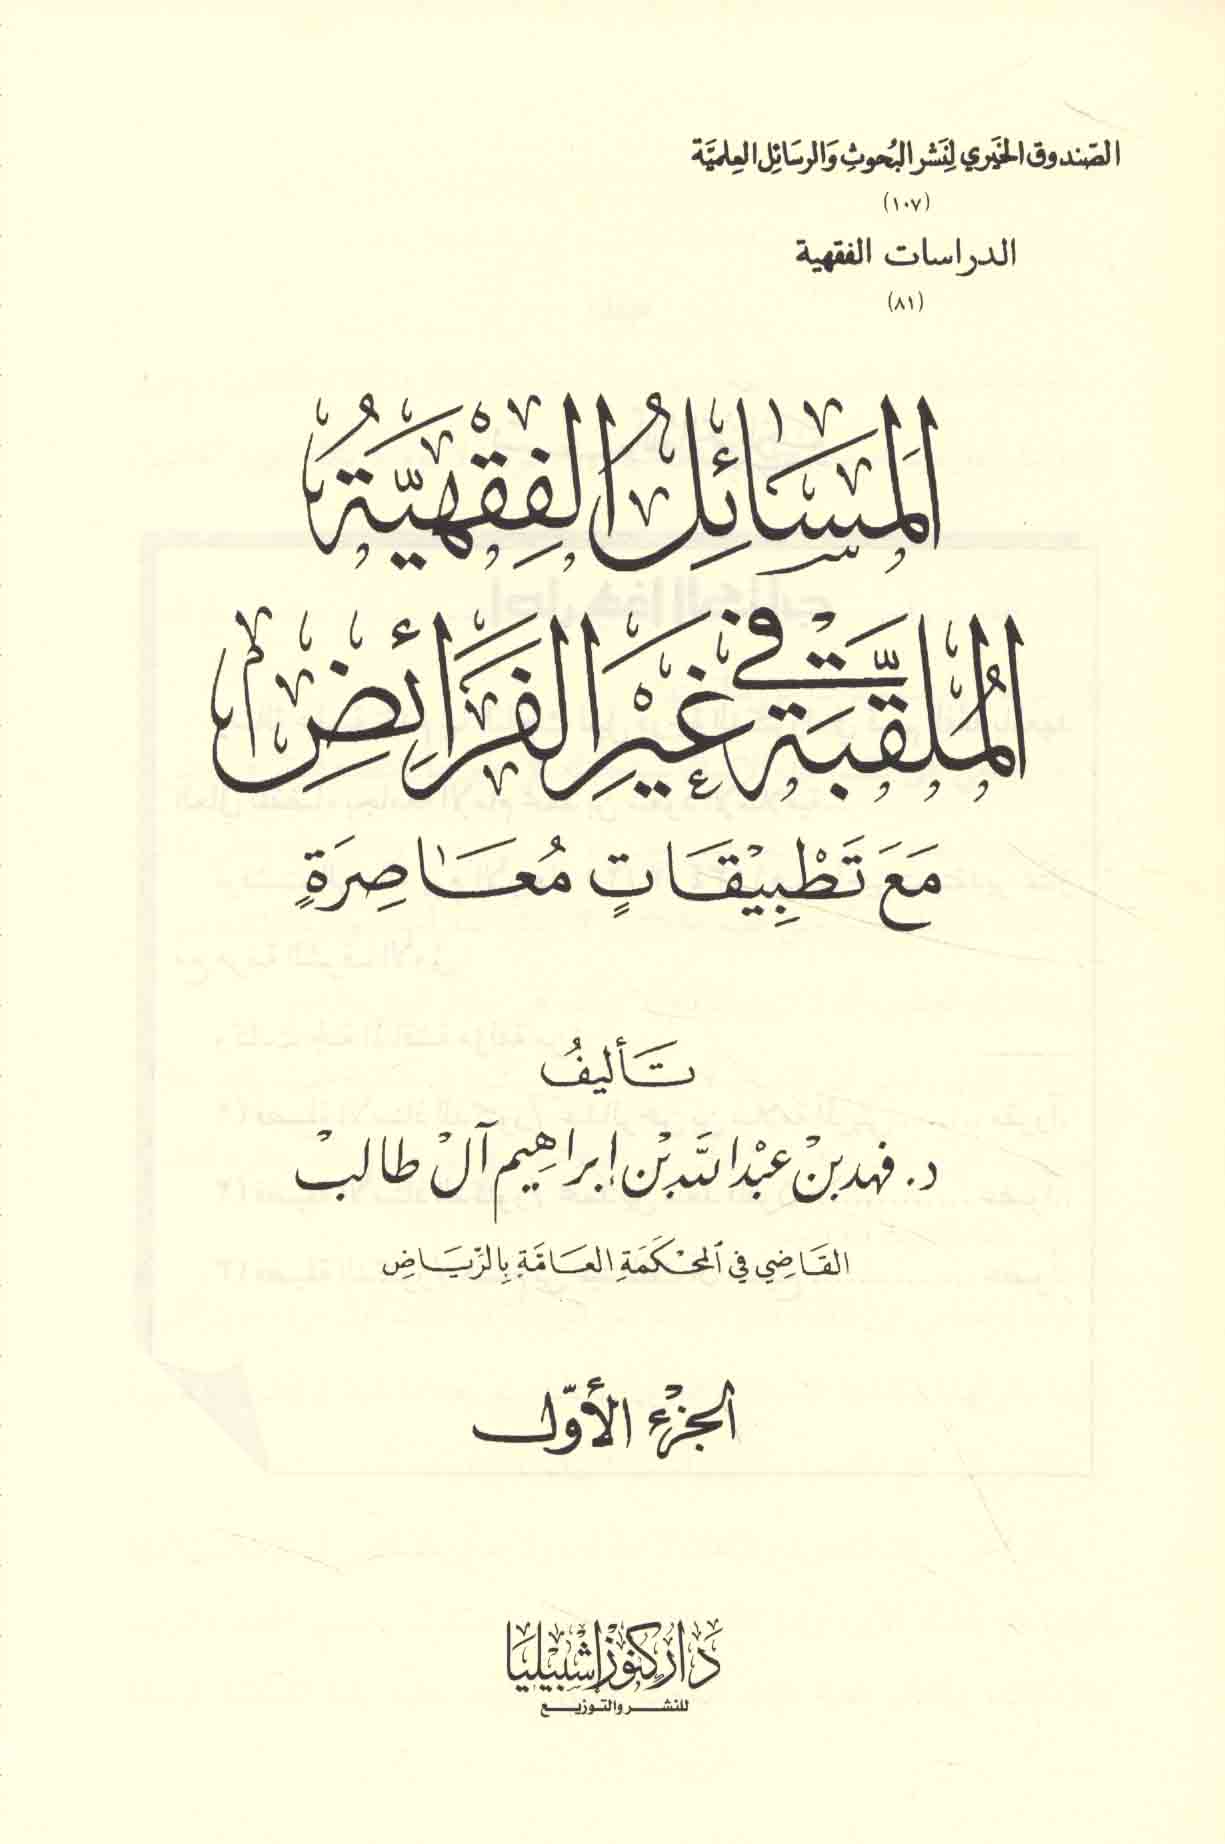 الصندوق الخيري لنشر البحوث والرسائل العلمية
(١٠٧)
الدراسات الفقهية
(٨١)
المَسَائِلُ الفِقْهِيَّةُ
المُلَقَّبَةُ فِي غَيْرِ الفَرَائِضِ
مَعَ تَطْبِيْقَاتٍ مُعَاصِرَةٍ
تأليفُ
د. فهد بنْ عبْد الله بْن إبراهيم آلْ طالبْ
القَاضِي في المحْكَمَةِ العَامَّةِ بِالرِّيَاضِ
الجزْء الأوّل
دَار كنوز إشبيليا
للنشر والتوزيع